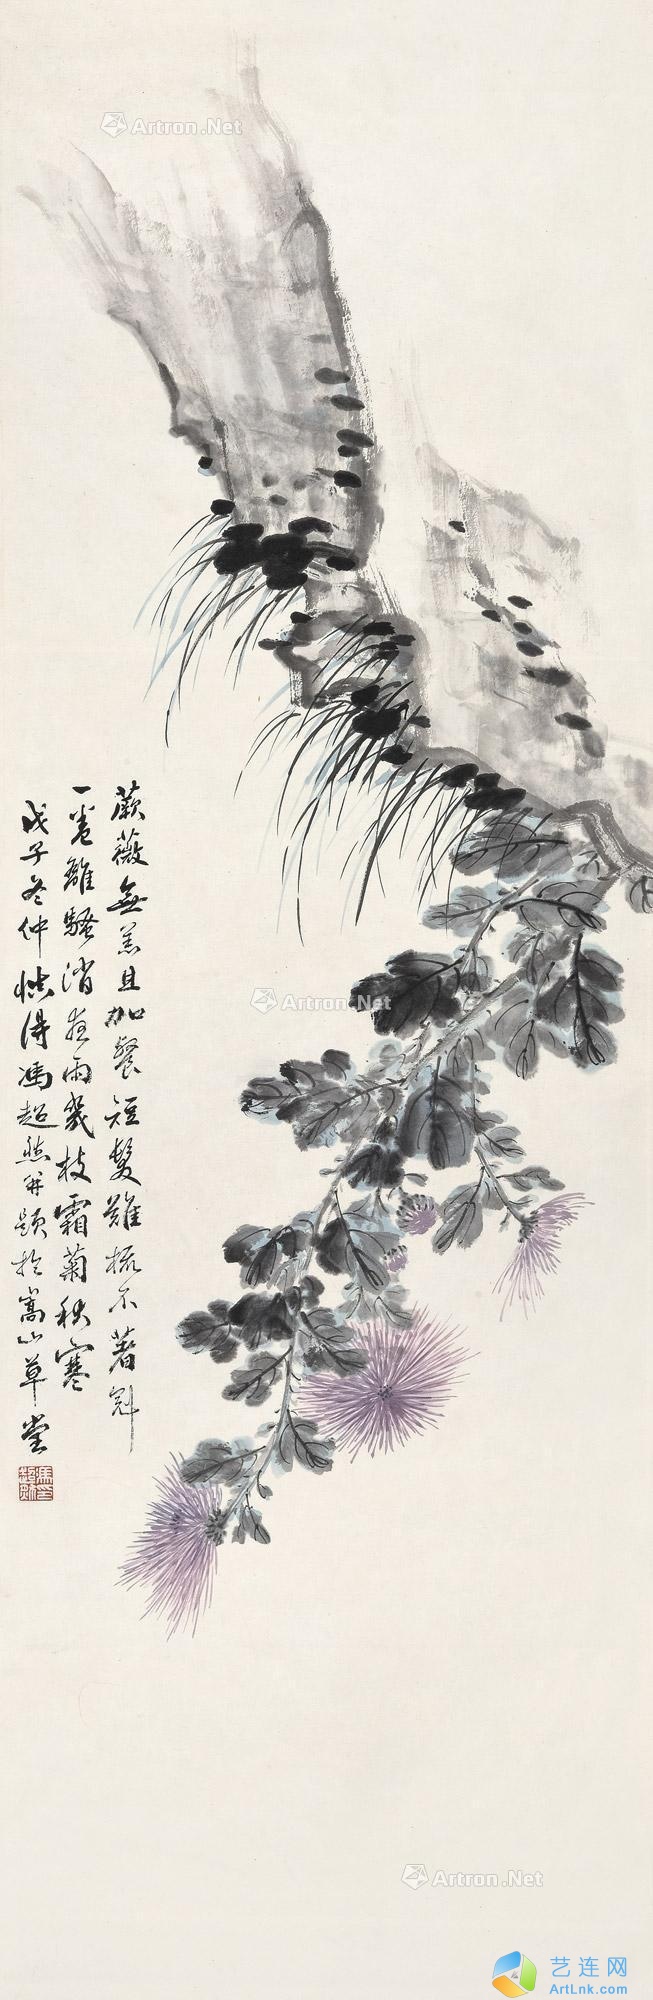 Artron.Net
蕨薇無恙且加餐短髮難梳不著冠
一卷離騷消夜雨幾枝霜菊秋寒
戊子冬仲慎得馮超然并題於嵩山草堂
Artron.Net
Artron.Net
艺连网
ArtLnk.com